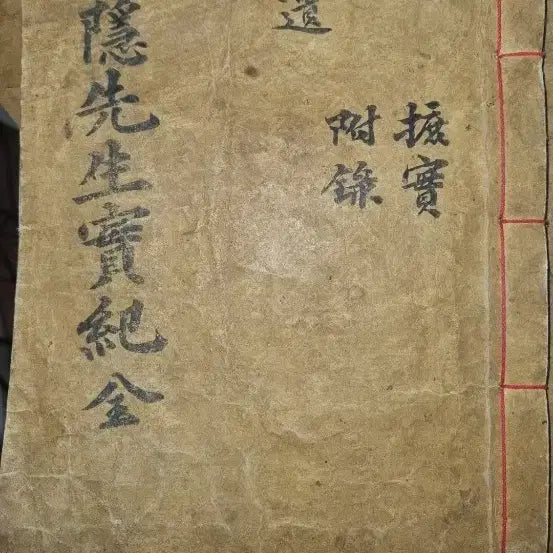 隱先生實紀全
遺
摭實
附錄